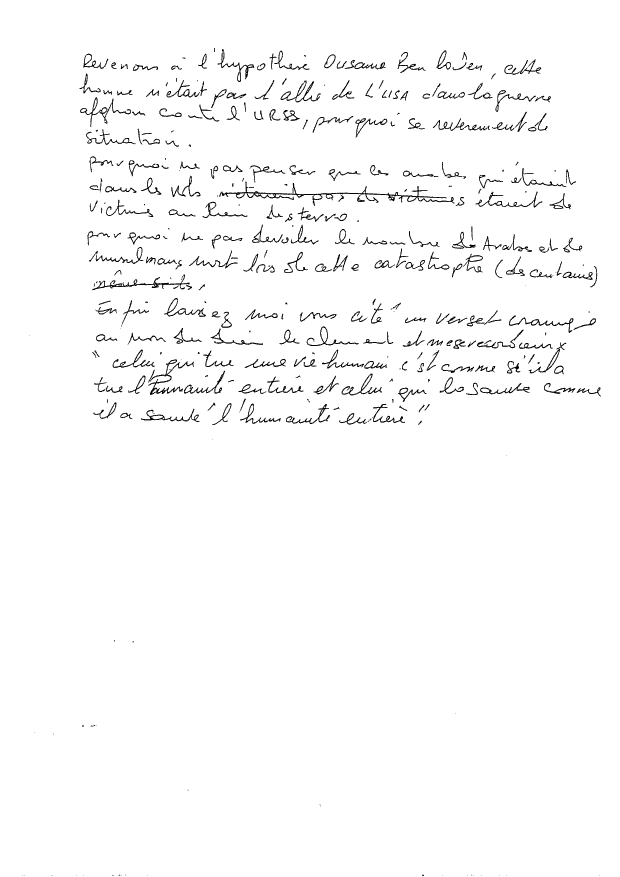 Revenons à l'hypothèse Ousama Ben laden, cette
homme n'était pas l'allié de L'USA dans la guerre
afghan conte l'URSS, pourquoi se reverement de
situation.
pourquoi ne pas penser que les arabes qui étaient
dans les vols n'étaient pas des victimes étaient de
victimes au lieu des terro.
pourquoi ne pas devoiler le nombre d'Arabe et de
musulmans mort lors de cette catastrophe (des centaines)
même si ils,
En fin laissez moi vous cité un verset
au nom du dieu le clement et mesericordieux
" celui qui tue une vie humain c'est comme si il a
tue l'humanité entière et celui qui la sauve comme
il a sauvé l'humanité entière".